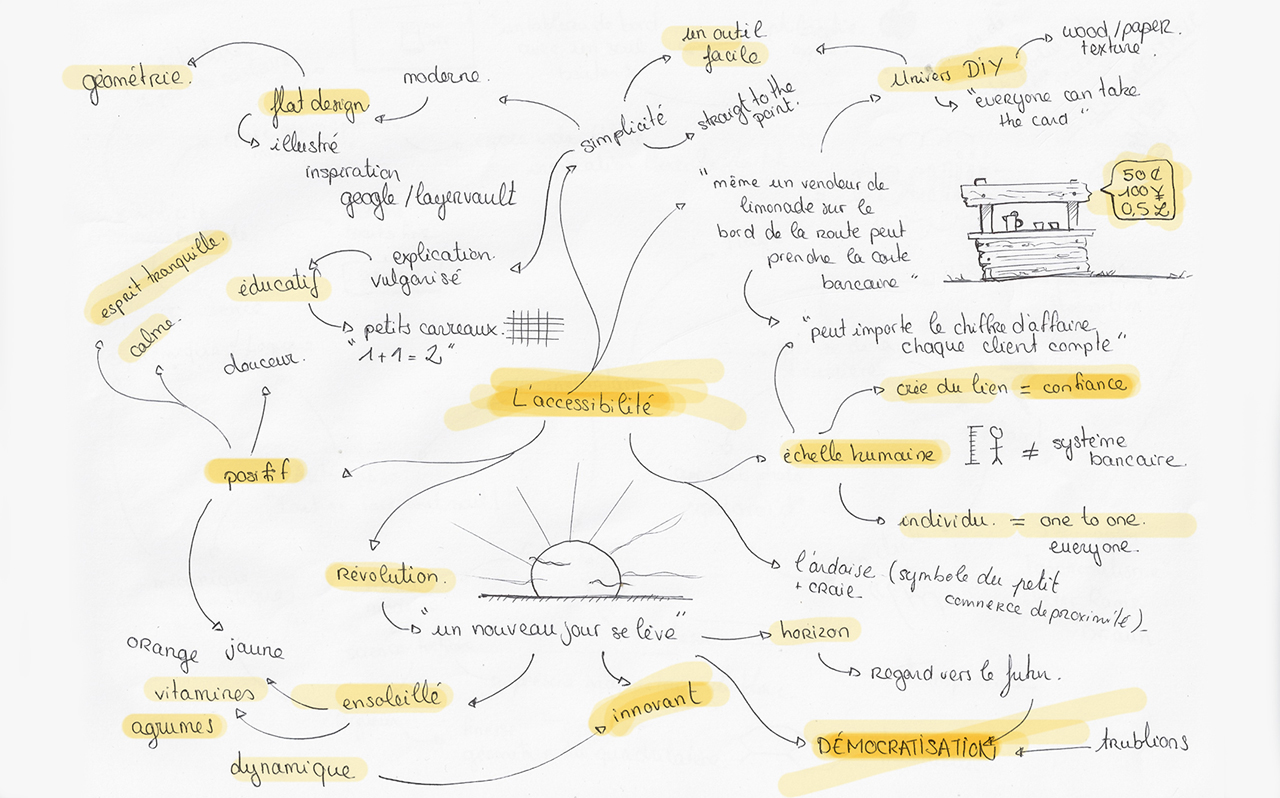 géométrie.
flat design
moderne.
illustré
inspiration
google / layervault
simplicité
un outil
facile
straigt to the
point.
Univers DIY
wood/paper.
texture.
"everyone can take
the card"
"même un vendeur de
limonade sur le
bord de la route peut
prendre la carte
bancaire"
50 ¢
100 ¥
0,5 £
"peut importe le chiffre d'affaire,
chaque client compte"
explication.
vulgarisé
éducatif
petits carreaux.
"1+1=2"
esprit tranquille.
calme.
douceur.
positif
L'accéssibilité
crée du lien = confiance
échelle humaine
≠ système
bancaire.
individu. = one to one.
everyone.
l'ardoise (symbole du petit
+ craie
commerce de proximité)
Révolution.
"un nouveau jour se lève"
horizon
Regard vers le futur.
orange
jaune
vitamines
agrumes
ensoleillé
innovant
dynamique
DÉMOCRATISATION
trublions